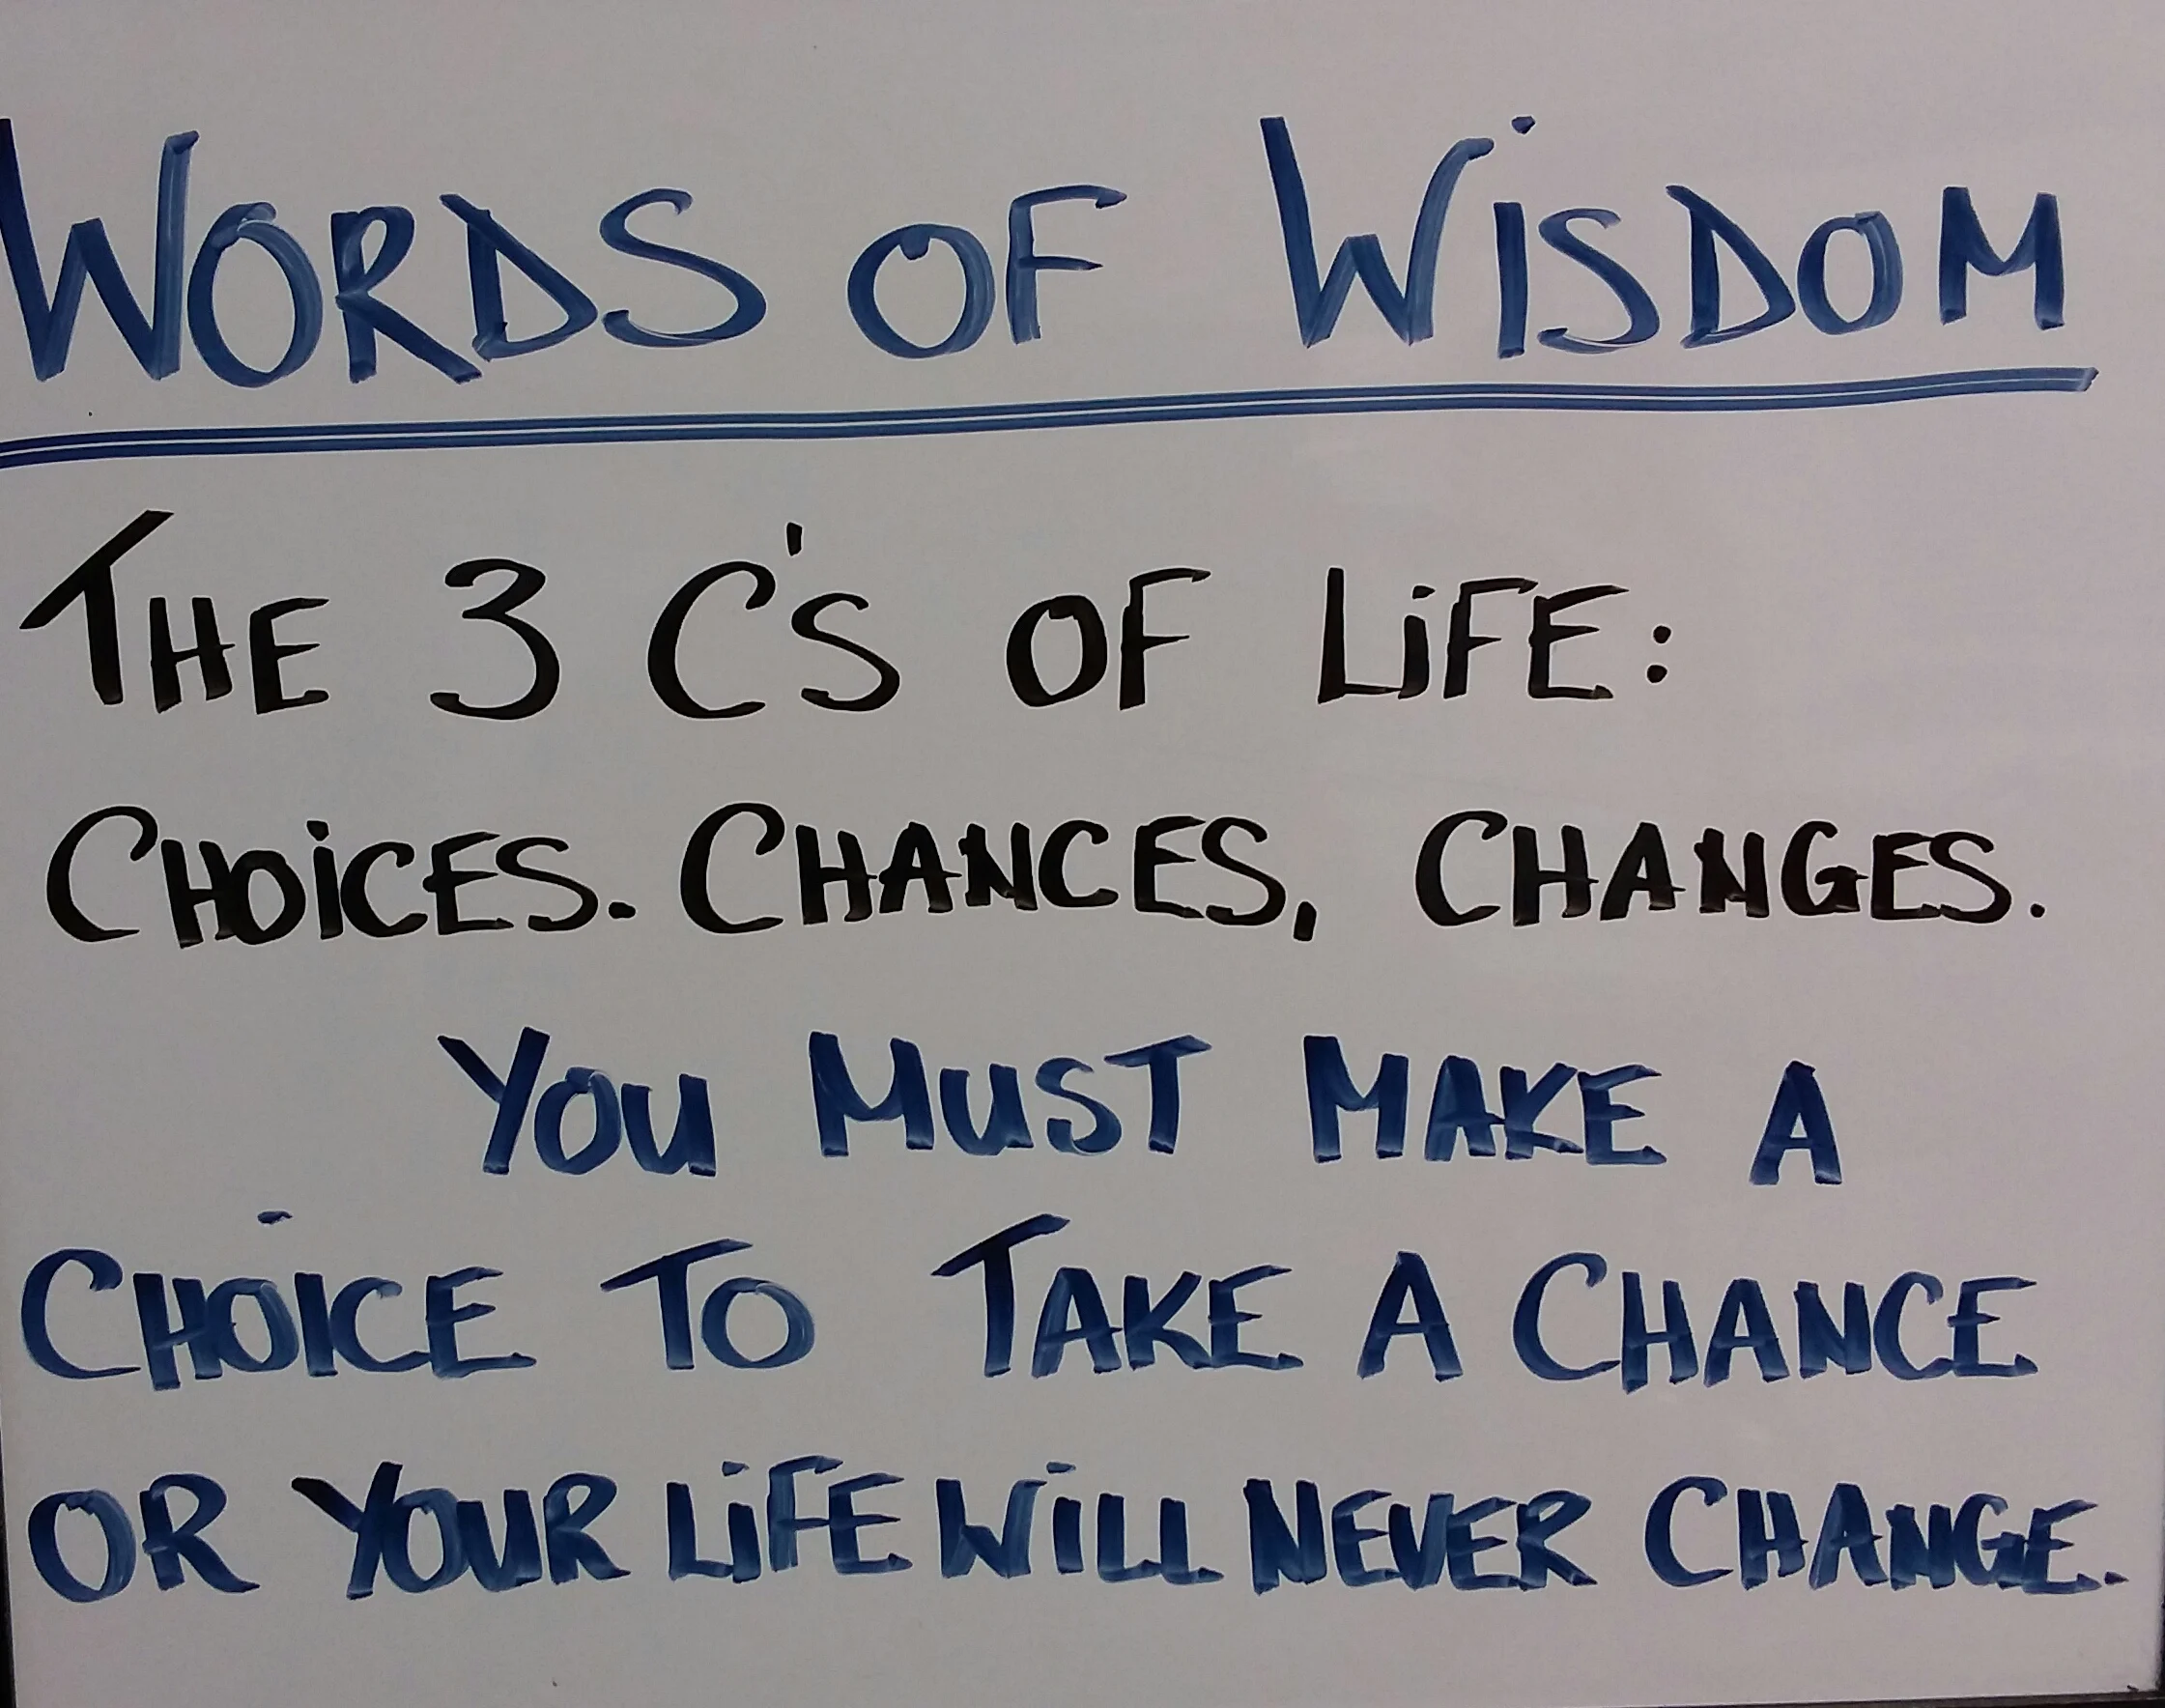 WORDS OF WISDOM
THE 3 C'S OF LiFE:
CHOiCES. CHANCES, CHANGES.
YOU MUST MAKE A
CHOICE TO TAKE A CHANCE
OR YOUR LiFE WiLL NEVER CHANGE.